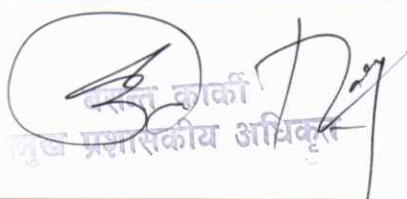 बसन्त कार्की
प्रमुख प्रशासकीय अधिकृत